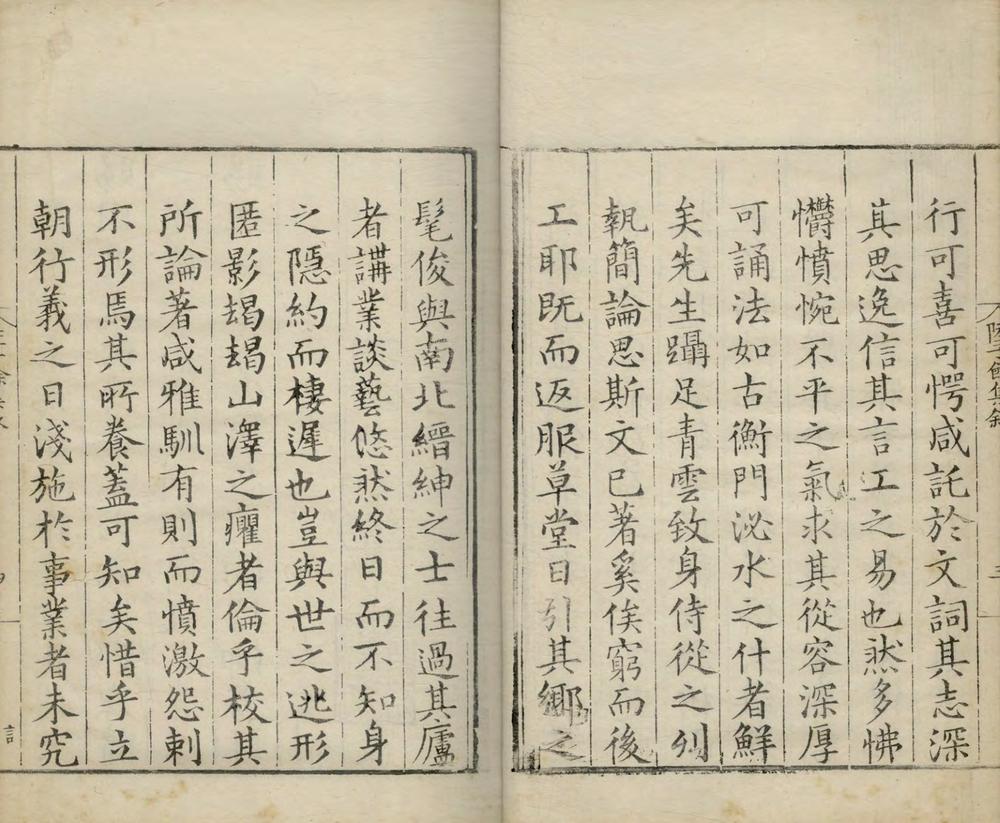 行可喜可愕咸託於文詞其志深
其思逸信其言工之易也然多怫
欝憤惋不平之氣求其從容深厚
可誦法如古衡門泌水之什者鮮
矣先生躡足青雲致身侍從之列
執簡論思斯文已著奚俟窮而後
工耶既而返服草堂日引其鄉之
髦俊與南北縉紳之士往過其廬
者講業談藝悠然終日而不知身
之隱約而棲遲也豈與世之逃形
匿影朅朅山澤之癯者倫乎校其
所論著咸雅馴有則而憤激怨刺
不形焉其所養蓋可知矣惜乎立
朝行義之日淺施於事業者未究